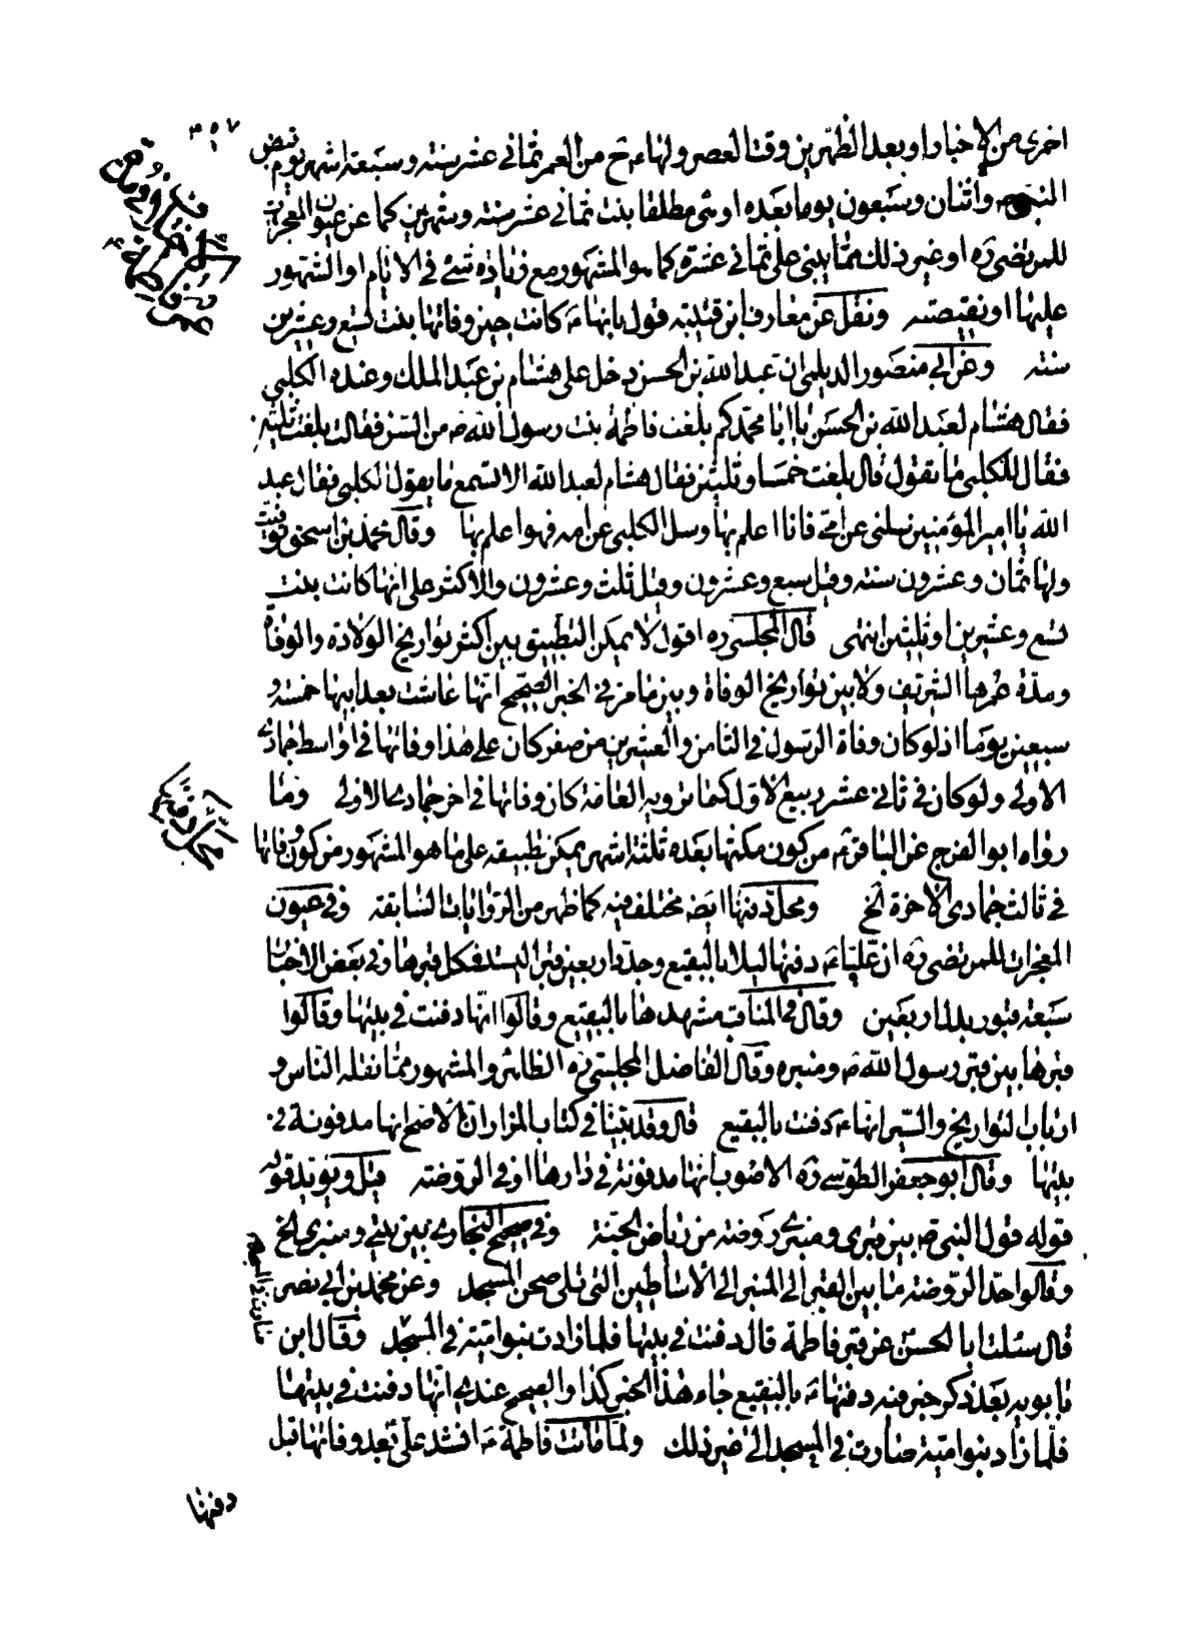 ٣٥٧
اخرى من الاخبار او بعد الظهرين وقت العصر ولها ء ح من العمر ثمانى عشر سنة وسبعة اشهر يوم قبض
النبى ص واثنان وسبعون يوما بعده او شئ مطلقا بنت ثمانى عشر سنة وشهرين كما عن عيون المعجزات
للمرتضى ره او غير ذلك مما يبنى على ثمانى عشرة كما هو المشهور مع زيادة شئ فى الايام او الشهور
عليها او نقيصة ونقل عن معارف ابن قتيبة قول بانها ء كانت حين وفاتها بنت تسع وعشرين
سنة وعن ابى منصور الديلمى ان عبد الله بن الحسن دخل على هشام بن عبد الملك وعنده الكلبى
فقال هشام لعبد الله بن الحسن يا ابا محمد كم بلغت فاطمة بنت رسول الله ص من السن فقال بلغت ثلثين
فقال للكلبى ما تقول قال بلغت خمسا وثلثين فقال هشام لعبد الله الا تسمع ما يقول الكلبى فقال عبد
الله يا امير المؤمنين سلنى عن امى فانا اعلم بها وسل الكلبى عن امه فهو اعلم بها وقال محمد بن اسحق توفيت
ولها ثمان وعشرون سنة وقيل سبع وعشرون وقيل ثلث وعشرون والاكثر على انها كانت بنت
تسع وعشرين او ثلثين انتهى قال المجلسى ره اقول لا يمكن التطبيق بين اكثر تواريخ الولادة والوفاة
ومدة عمرها الشريف ولا بين تواريخ الوفاة وبين ما مر فى الخبر الصحيح انها عاشت بعد ابيها خمسة و
سبعين يوما اذ لو كان وفاة الرسول فى الثامن والعشرين من صفر كان على هذا وفاتها فى اواسط جمادى
الاولى ولو كان فى ثانى عشر ربيع الاول كما ترويه العامة كان وفاتها فى اخر جمادى الاولى وما
رواه ابو الفرج عن الباقر ء م من كون مكثها بعده ثلثة اشهر يمكن تطبيقه على ما هو المشهور من كون وفاتها
فى ثالث جمادى الاخرة الخ ومحل دفنها ايضا مختلف فيه كما ظهر من الروايات السابقة وفى عيون
المعجزات للمرتضى ره ان عليا ء دفنها ليلا بالبقيع وجدد اربعين قبرا ليستشكل قبرها وفى بعض الاخبار
سبعة قبور بدل اربعين وقال فى المناقب مشهدها بالبقيع وقالوا انها دفنت فى بيتها وقالوا
قبرها بين قبر رسول الله ص ومنبره وقال الفاضل المجلسى ره الظاهر والمشهور مما نقله الناس و
ارباب التواريخ والسير انها ء دفنت بالبقيع قال وقد بينا فى كتاب المزار ان الاصح انها مدفونة فى
بيتها وقال ابو جعفر الطوسى ره الاصوب انها مدفونة فى دارها او فى الروضة قيل ويؤيد قوله
قوله قول النبى ص بين قبرى ومنبرى روضة من رياض الجنة وفى صحيح البخارى بين بيتى ومنبرى الخ
وقالوا حد الروضة ما بين القبر الى المنبر الى الاساطين التى تلى صحن المسجد وعن محمد بن ابى نصر
قال سئلت ابا الحسن عن قبر فاطمة قال دفنت فى بيتها فلما زادت بنو امية فى المسجد وقال ابن
بابويه بعد ذكر خبر فيه دفنها ء بالبقيع جاء هذا الخبر كذا والصحيح عندى انها دفنت فى بيتها
فلما زاد بنو امية صارت فى المسجد الى غير ذلك ولما ماتت فاطمة ء انشد على بعد وفاتها قبل
دفنها
محل دفنها
صارت فى المسجد